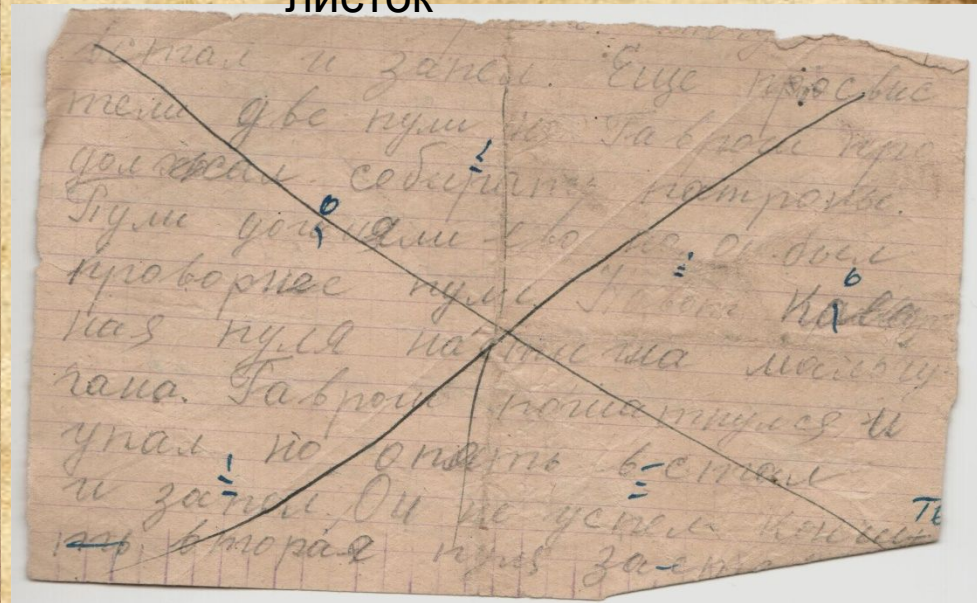 листок
встал и запел. Еще просвис
тели две пули но Гаврош про
должал собирать патроны.
Пули догоняли его но он был
проворнее пули.
ная пуля настигла мальчу-
гана. Гаврош пошатнулся и
упал но опять в-стал
и запел. Он не успел кончи-
ть вторая пуля